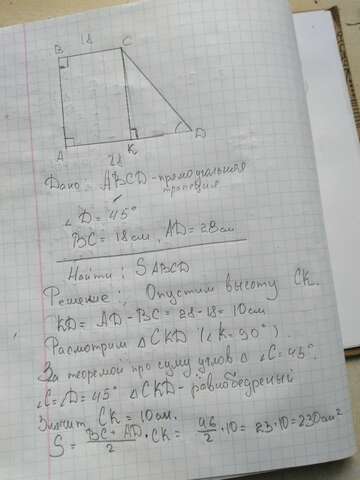 18
B C
A K D
28
Дано: ABCD - прямоугольная
трапеция
∠D = 45°
BC = 18 см, AD = 28 см
Найти: S ABCD
Решение: Опустим высоту CK.
KD = AD - BC = 28 - 18 = 10 см
Расмотрим △CKD (∠K = 90°)
За теоремой про суму углов ∠C = 45°.
∠C = ∠D = 45° △CKD - равнобедреный
Значит CK = 10 см.
S = BC + AD / 2 · CK = 46 / 2 · 10 = 23 · 10 = 230 см²